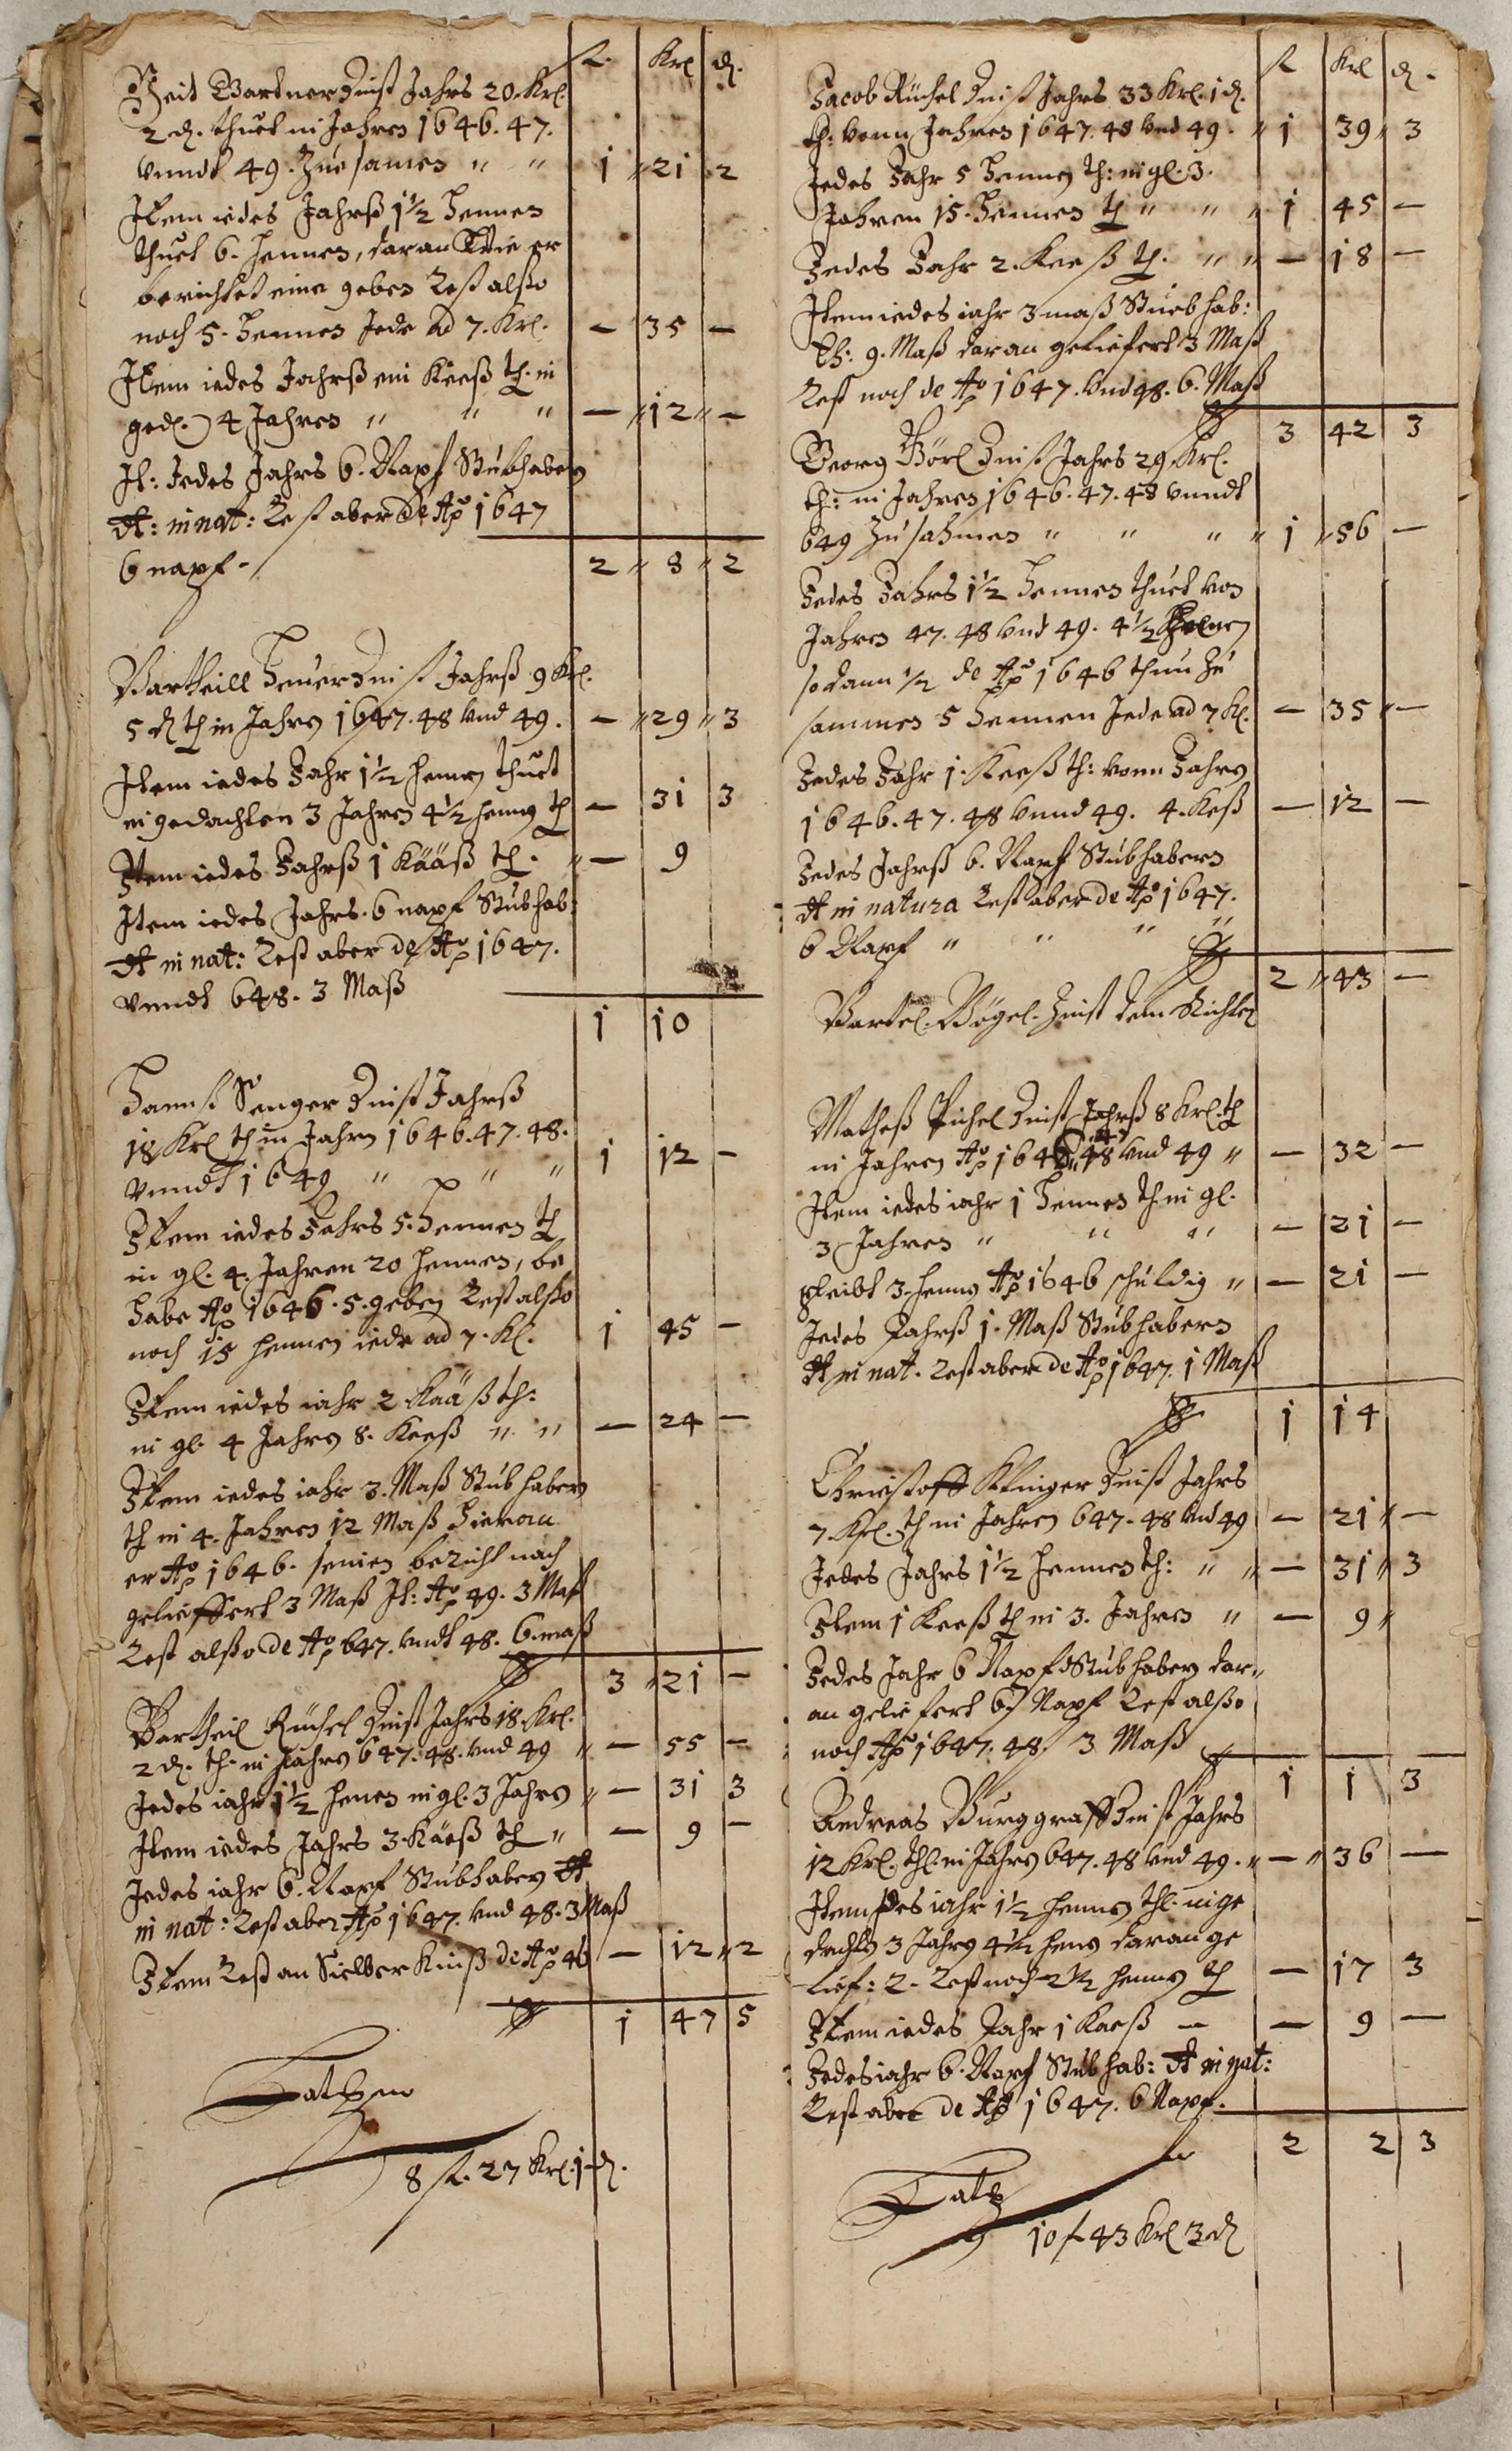 fl. Krl ₰.
Veit Gartner Zinst Jahrs 20. Krl.
2 ₰. thuet in Jahren 1646. 47.
vnndt 49. Zue samen " " 1 " 21 2
Item iedes Jahrß 1½ Hennen
thuet 6. Hennen, daran Er wie er
berichtet eine geben Rest alßo
noch 5. Hennen Jede ad 7. Krl. — 35 —
Item iedes Jahrß ein Keeß th. in
ged. 4 Jahren " " " — " 12 " —
It: Jedes Jahrs 6. Napf Stubhabern
dt: in nat: Rest aber de Ao 1647
6 napf. 2 " 8 " 2
Bartheill Heuer Zinst Jahrß 9 Krl.
5 ₰ th in Jahrn 1647. 48 vnd 49. — " 29 " 3
Item iedes Jahr 1½ hennen thuet
in gedachten 3 Jahren 4½ henn th — 31 3
Item iedes Jahrß 1 Kääß th. " — 9
Item iedes Jahrs. 6 napf Stubhab:
dt in nat: Rest aber de Ao 1647.
vnndt 648. 3 Maß
1 10
Hannß Senger Zinst Jahrß
18 Krl th in Jahrn 1646. 47. 48.
vnndt 1649 " " " 1 12 —
Item iedes Jahrs 5. Hennen th
in gl. 4. Jahren 20 Hennen, be
habe Ao 1646. 5. geben Rest alßo
noch 15 hennen iede ad 7. Kl. 1 45 —
Item iedes iahr 2 Kääß th:
in gl. 4 Jahrn 8. Keeß " " — 24 —
Item iedes iahr 3. Maß Stubhabern
th in 4. Jahren 12 Maß Hieran
er Ao 1646. seinen bericht nach
gelieffert 3 Maß It: Ao 49. 3 Maß
Rest alßo de Ao 647. vndt 48. 6. maß
3 " 21 —
Bartheil Küchel Zinst Jahrs 18. Krl.
2 ₰. th. in Jahrn 647. 48. vnd 49 " — 55 —
Jedes iahr 1½ henen in gl. 3 Jahrn " — 31 3
Item iedes Jahrs 3. Käeß th " — 9 —
Jedes iahr 6. Napf Stubhabern dt
in nat: Rest aber Ao 1647. vnd 48. 3 Maß
Item Rest an Zinß de Ao 46 — 12 " 2
1 47 5
Latus
8 fl. 27 Krl. 1 ₰.
fl Krl ₰.
Jacob Küchel Zinst Jahrs 33 Krl. 1 ₰.
th: vonn Jahren 1647. 48 vnd 49. " 1 39 " 3
Jedes Jahr 5 Hennen th: in gl. 3.
Jahren 15. Hennen th " " " 1 45 —
Jedes Jahr 2. Keeß th. " " — 18 —
Item iedes iahr 3 maß Stuebhab:
th: 9. Maß daran geliefert 3 Maß
Rest noch de Ao 1647. vnd 48. 6. Maß
3 42 3
Georg Görl Zinst Jahrs 29. Krl.
th: in Jahren 1646. 47. 48 vnndt
649 Zusahmen " " " " 1 " 56 —
Jedes Jahrs 1½ Hennen thuet von
Jahren 47. 48 vnd 49. 4½ Hennen
so dann ½ de Ao 1646 thuen Zu
sammen 5 Hennen Jede ad 7 Kl. — 35 " —
Jedes Jahr 1. Keeß th: vonn Jahrn
1646. 47. 48 vnnd 49. 4. Keß — 12 —
Jedes Jahrß 6. Napf Stubhabern
dt in natura Rest aber de Ao 1647.
6 Napf " " " "
2 " 43 —
Bartel. Vögel. Zinst dem Richter
Matheß Pichel Zinst Jahrß 8 Krl. th
in Jahren Ao 1646 47 48 vnd 49 " — 32 —
Item iedes iahr 1 Hennen th. in gl.
3 Jahren " " " — 21 —
Pleibt 3. henn Ao 1646 schuldig " — 21 —
Jedes Jahrß 1. Maß Stubhabern
dt in nat. Rest aber de Ao 1647. 1 Maß
1 14
Christoff Klinger Zinst Jahrs
7. Krl. th in Jahren 647. 48 vnd 49 — 21 " —
Jedes Jahrs 1½ Hennen th: " " — 31 " 3
Item 1 Keeß th in 3. Jahren " — 9 "
Jedes Jahr 6 Napf Stubhabern dar"
an geliefert 6 Napf Rest alßo
noch Ao 1647. 48. 3 Maß
1 1 3
Andreas Burggraff Zinst Jahrs
12 Krl. thl. in Jahrn 647. 48 vnd 49. " — " 36 —
Item Jedes iahr 1½ hennen thl. in ge
dachten 3 Jahrn 4½ henn daran ge
lief: 2. Rest noch 2½ hennen th — 17 3
Item iedes Jahr 1 Kaeß — — 9 —
Jedes iahr 6. Napf Stubhab: dt in nat:
Rest aber de Ao 1647. 6 Napf.
2 2 3
Latus
10 f 43 Krl 3 ₰